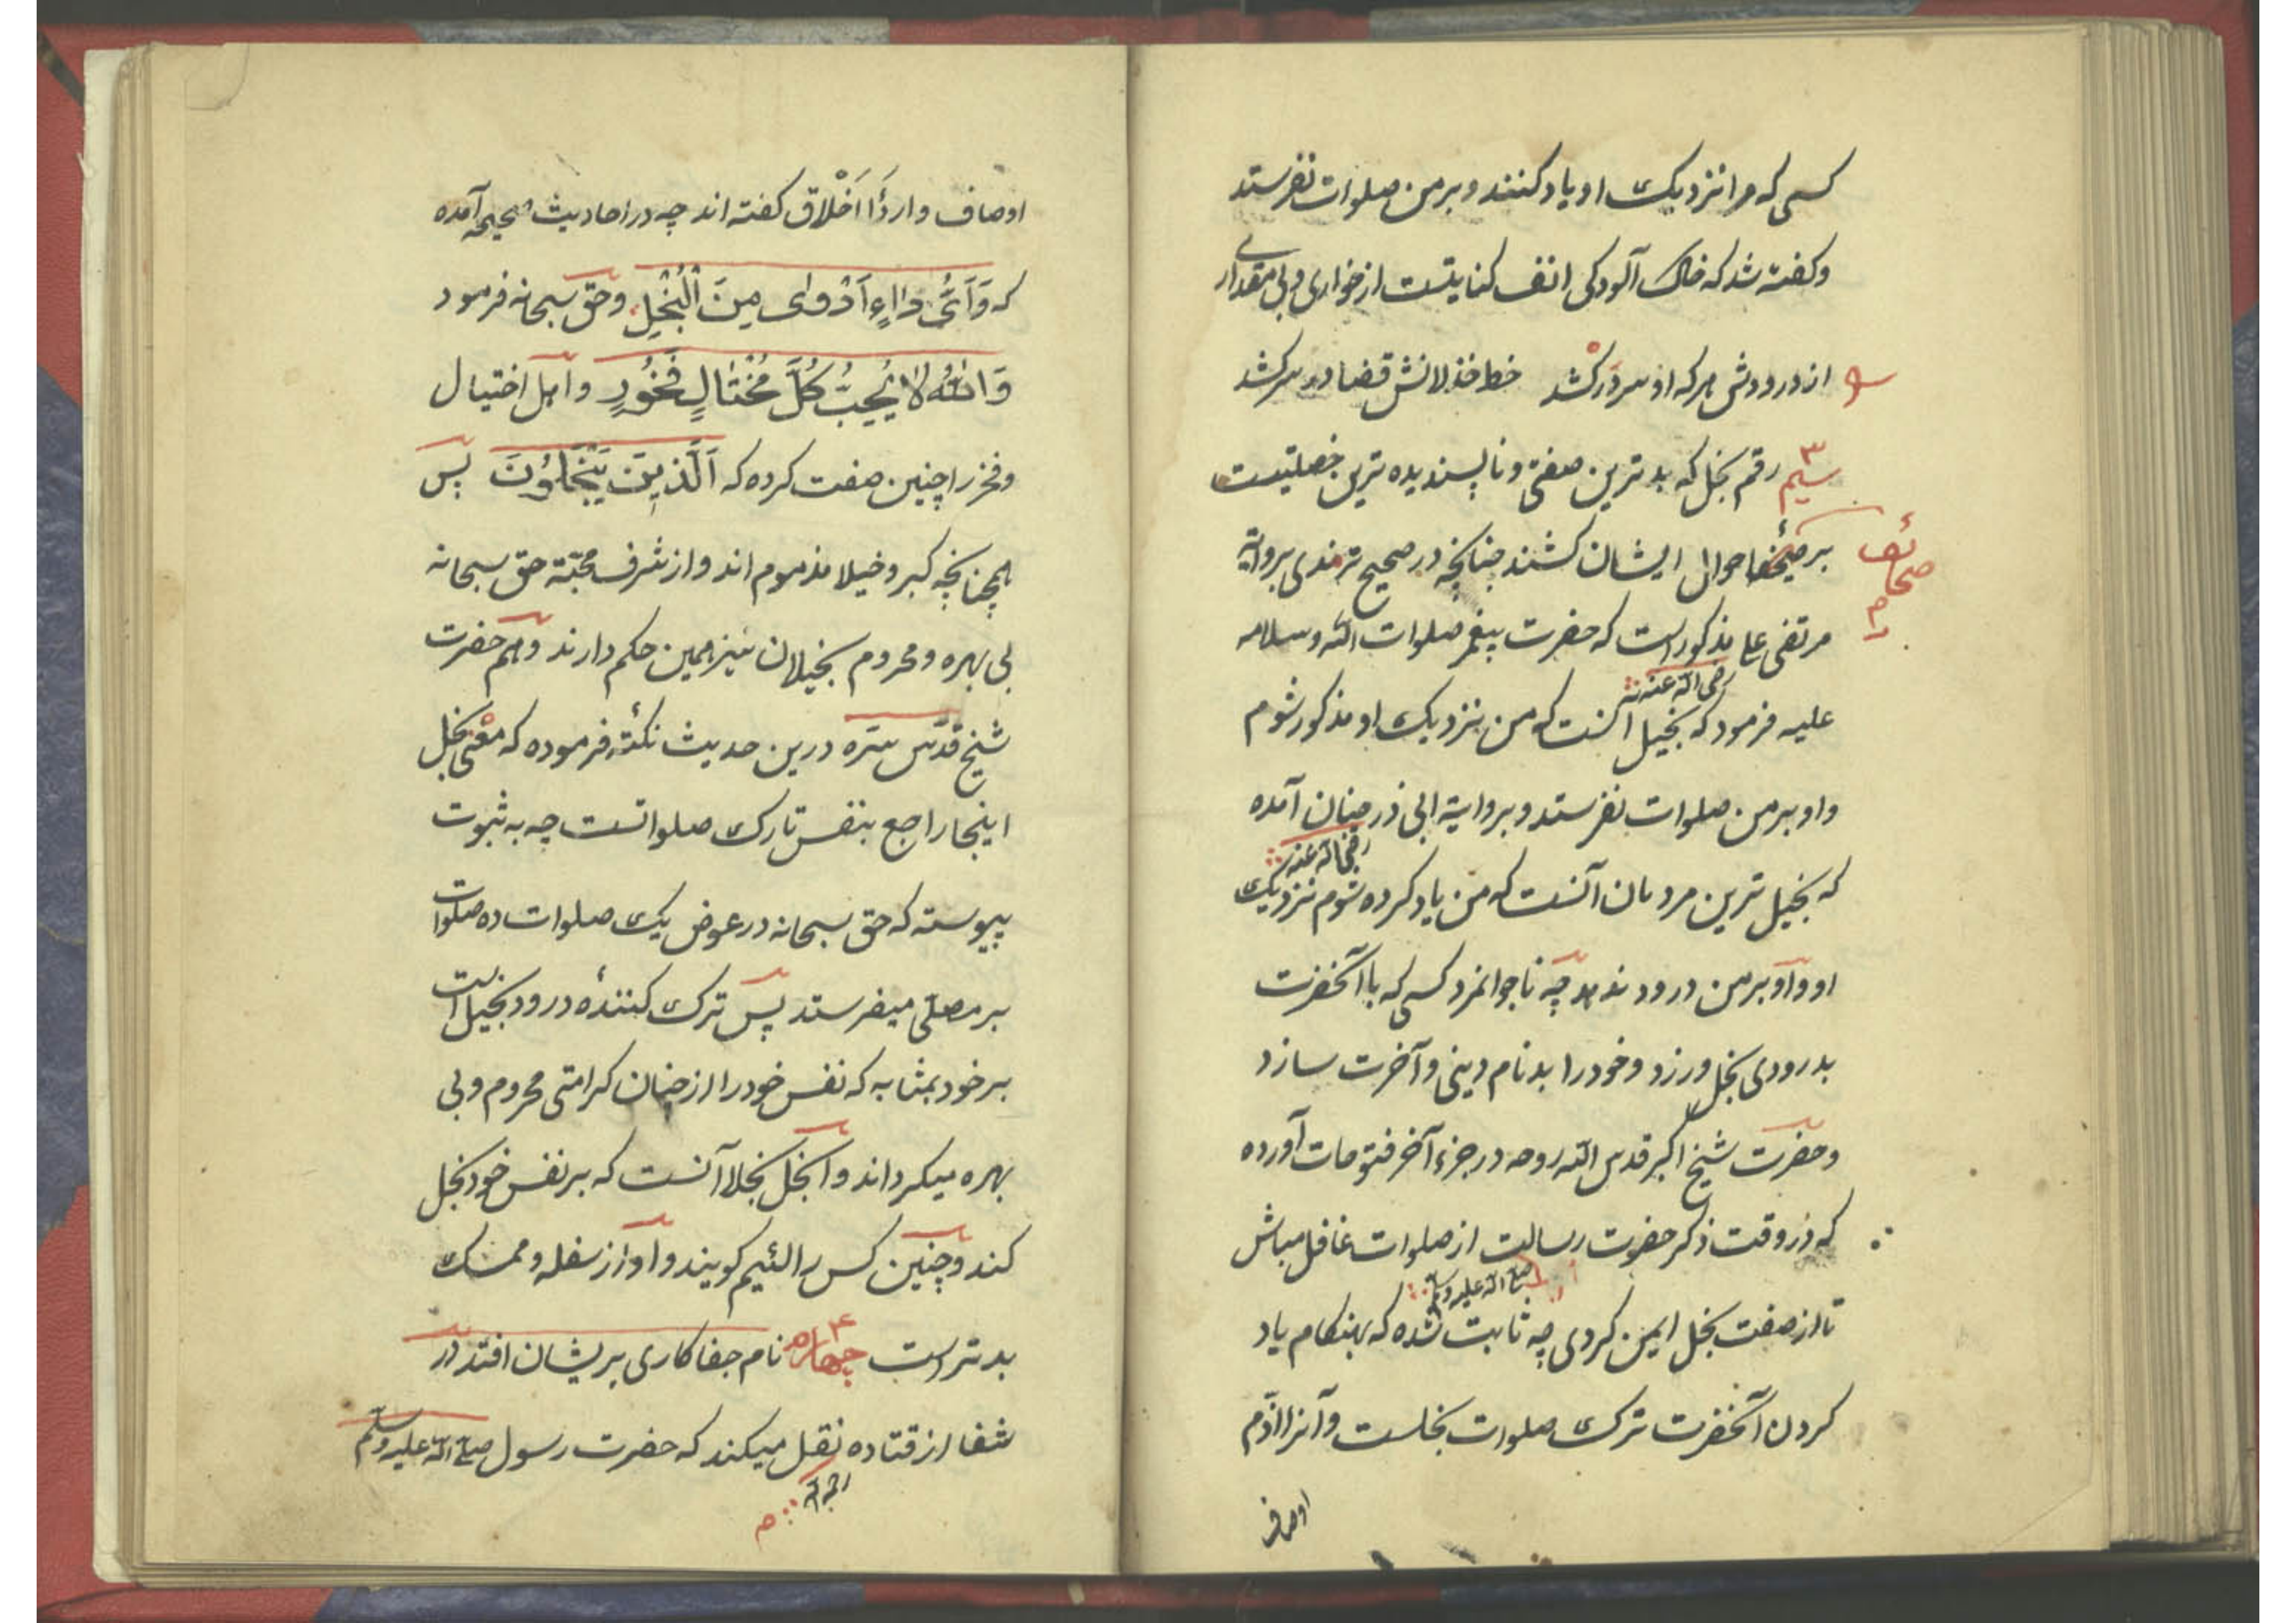 کسی که مرا نزدیک او یاد کنند و بر من صلوات نفرستد
و کفته شد که خاک آلودکی انف کنایتست از خواری و بی مقداری
از درودش هر که او سر درکشد خط خذلانش قضا در سر کشد
سیم ۳ رقم بخل که بدترین صفتی و ناپسندیده ترین خصلتیست
بر صحائف احوال ایشان کشند چنانچه در صحیح ترمذی بروایة
صحائف
مرتضی علی مذکور است که حضرت پیغمبر صلوات الله و سلامه
رضی الله عنه
علیه فرمود که بخیل آنست که من بنزدیک او مذکور شوم
و او بر من صلوات نفرستد و بروایة ابی ذر چنان آمده
رضی الله عنه
که بخیل ترین مردمان آنست که من یاد کرده شوم نزدیک
او و او بر من درود ندهد چه ناجوانمرد کسی که با آنحضرت
بدرودی بخل ورزد و خود را بدنام دینی و آخرت سازد
و حضرت شیخ اکبر قدس الله روحه در جزء آخر فتوحات آورده
که در وقت ذکر حضرت رسالت از صلوات غافل مباش
صلی الله علیه وسلم
تا از صفت بخل ایمن کردی چه ثابت شده که بهنکام یاد
کردن آنحضرت ترک صلوات بخلست و آنرا اذم
اوصاف
اوصاف و اردأ اخلاق کفته اند چه در احادیث صحیحه آمده
که وَاَیُّ دَاءٍ اَدْوٰی مِنَ الْبُخْلِ و حق سبحانه فرمود
وَاللّٰهُ لَا یُحِبُّ کُلَّ مُخْتَالٍ فَخُورٍ و اهل اختیال
و فخر را چنین صفت کرده که اَلَّذِینَ یَبْخَلُونَ پس
همچنانچه کبر و خیلا مذموم اند و از شرف محبّة حق سبحانه
بی بهره و محروم بخیلان نیز همین حکم دارند و هم حضرت
شیخ قدّس سرّه درین حدیث نکتۀ فرموده که معنی بخل
اینجا راجع بنفس تارک صلواتست چه به ثبوت
پیوسته که حق سبحانه در عوض یک صلوات ده صلوات
بر مصلّی میفرستد پس ترک کنندۀ درود بخیل است
بر خود بمثابه که نفس خود را از چنان کرامتی محروم و بی
بهره میکرداند و ابخل بخلا آنست که بر نفس خود بخل
کند و چنین کس را لئیم کویند و او از سفله و ممسک
بدتر است چهارم ۴ نام جفاکاری بریشان افتد در
شفا از قتاده نقل میکند که حضرت رسول صلی الله علیه وسلم